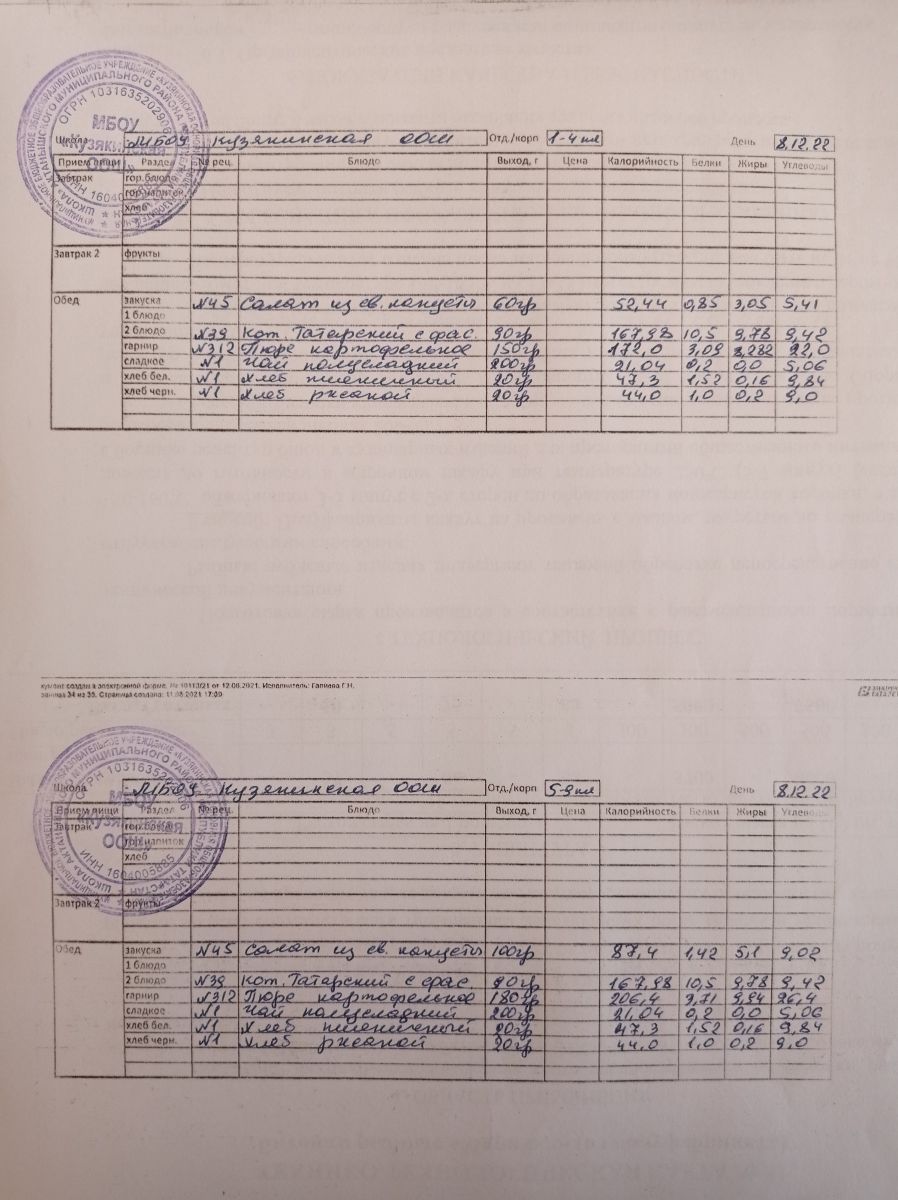 МУНИЦИПАЛЬНОГО РАЙОНА
ОГРН 1031635202906
МБОУ
«Кузякинская
ООШ»
Школа МБОУ Кузякинская ООШ Отд./корп 1-4 кл День 8.12.22
Прием пищи Раздел № рец. Блюдо Выход, г Цена Калорийность Белки Жиры Углеводы
Завтрак гор.блюдо
гор.напиток
хлеб
Завтрак 2 фрукты
Обед закуска №45 Салат из св. капусты 60гр 52,44 0,85 3,05 5,41
1 блюдо
2 блюдо №39 Кот. Татарский с фас. 90гр 167,98 10,5 9,78 9,42
гарнир №312 Пюре картофельное 150гр 172,0 3,09 8,282 22,0
сладкое №1 Чай полусладкий 200гр 21,04 0,2 0,0 5,06
хлеб бел. №1 Хлеб пшеничный 20гр 47,3 1,52 0,16 9,84
хлеб черн. №1 Хлеб ржаной 20гр 44,0 1,0 0,2 9,0
кумент создан в электронной форме. № 10113/21 от 12.08.2021. Исполнитель: Галиева Г.Н.
раница 34 из 35. Страница создана: 11.08.2021 17:00
МУНИЦИПАЛЬНОГО РАЙОНА
ОГРН 1031635202906
МБОУ
«Кузякинская
ООШ»
ИНН 1604005825
Школа МБОУ Кузякинская ООШ Отд./корп 5-9 кл День 8.12.22
Прием пищи Раздел № рец. Блюдо Выход, г Цена Калорийность Белки Жиры Углеводы
Завтрак гор.блюдо
гор.напиток
хлеб
Завтрак 2 фрукты
Обед закуска №45 Салат из св. капусты 100гр 87,4 1,42 5,1 9,02
1 блюдо
2 блюдо №39 Кот. Татарский с фас. 90гр 167,98 10,5 9,78 9,42
гарнир №312 Пюре картофельное 180гр 206,4 3,71 9,94 26,4
сладкое №1 Чай полусладкий 200гр 21,04 0,2 0,0 5,06
хлеб бел. №1 Хлеб пшеничный 20гр 47,3 1,52 0,16 9,84
хлеб черн. №1 Хлеб ржаной 20гр 44,0 1,0 0,2 9,0